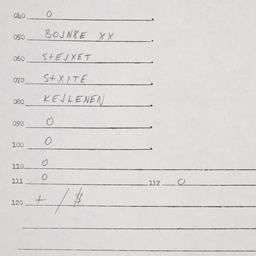 040 0
050 BOJNBE XX
060 S+EJXET
070 S+XITE
080 KEJLENEN
090 0
100 0
110 0
111 0 112 0
120 + / $